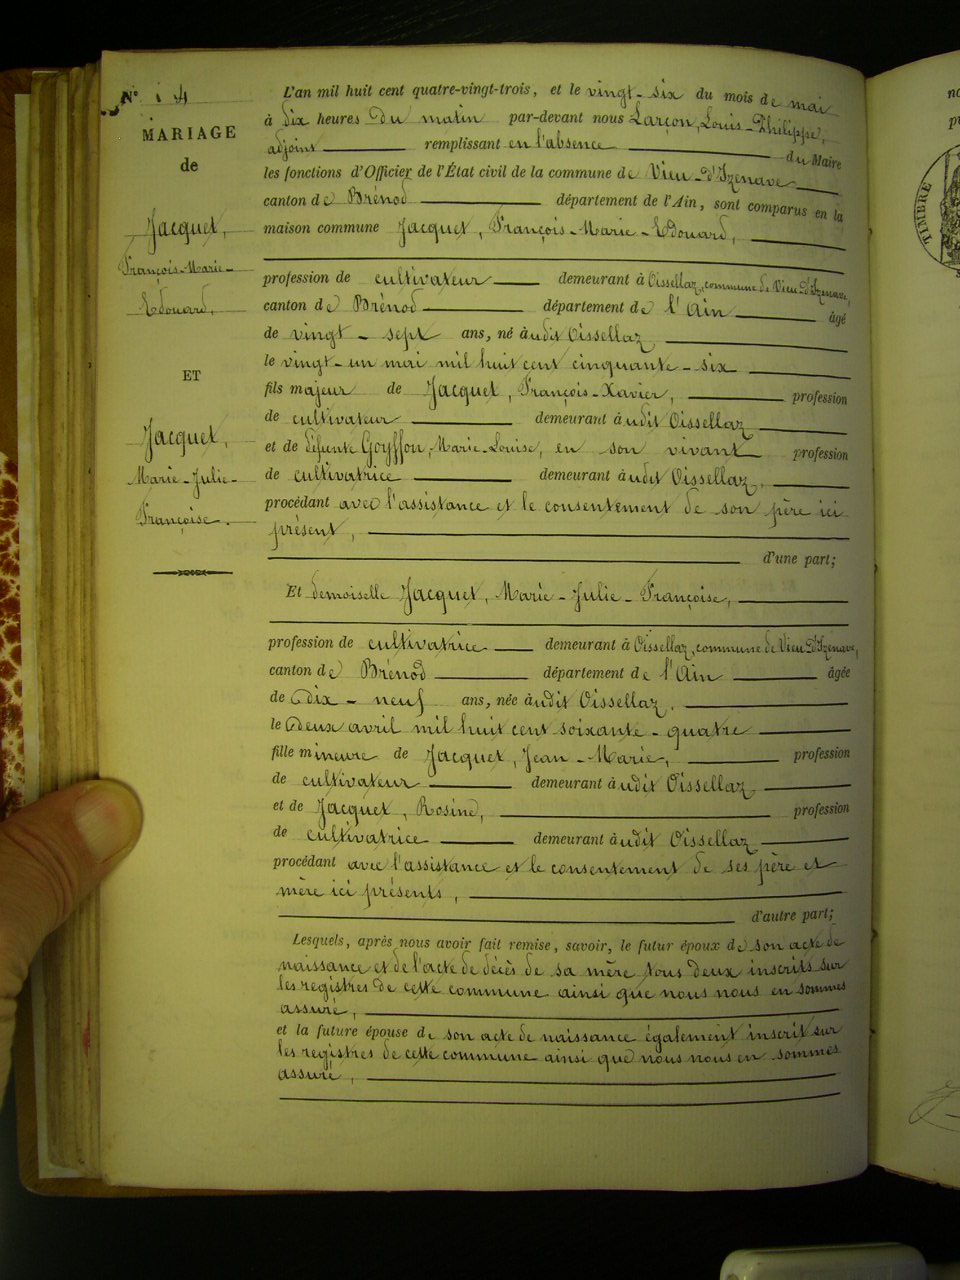 N° 4
MARIAGE
de
Jacquet,
François-Marie-
Edouard,
ET
Jacquet,
Marie-Julie-
Françoise.
L'an mil huit cent quatre-vingt-trois, et le vingt-six du mois de mai
à dix heures du matin par-devant nous Larçon, Louis-Philippe,
adjoint remplissant en l'absence du Maire
les fonctions d'Officier de l'État civil de la commune de Vieu-d'Izenave
canton de Brénod département de l'Ain, sont comparus en la
maison commune Jacquet, François-Marie-Edouard,
profession de cultivateur demeurant à Oissellaz, commune de Vieu-d'Izenave,
canton de Brénod département de l'Ain âgé
de vingt-sept ans, né àudit Oissellaz,
le vingt-un mai mil huit cent cinquante-six
fils majeur de Jacquet, François-Xavier, profession
de cultivateur demeurant àudit Oissellaz
et de défunte Goyffon, Marie-Louise, en son vivant profession
de cultivatrice demeurant àudit Oissellaz,
procédant avec l'assistance et le consentement de son père ici
présent,
d'une part;
Et demoiselle Jacquet, Marie-Julie-Françoise,
profession de cultivatrice demeurant à Oissellaz, commune de Vieu-d'Izenave,
canton de Brénod département de l'Ain âgée
de dix-neuf ans, née àudit Oissellaz,
le deux avril mil huit cent soixante-quatre
fille mineure de Jacquet, Jean-Marie, profession
de cultivateur demeurant àudit Oissellaz
et de Jacquet, Rosine, profession
de cultivatrice demeurant àudit Oissellaz
procédant avec l'assistance et le consentement de ses père et
mère ici présents,
d'autre part;
Lesquels, après nous avoir fait remise, savoir, le futur époux de son acte de
naissance et de l'acte de décès de sa mère tous deux inscrits sur
les registres de cette commune ainsi que nous nous en sommes
assuré,
et la future épouse de son acte de naissance également inscrit sur
les registres de cette commune ainsi que nous nous en sommes
assuré,
TIMBRE